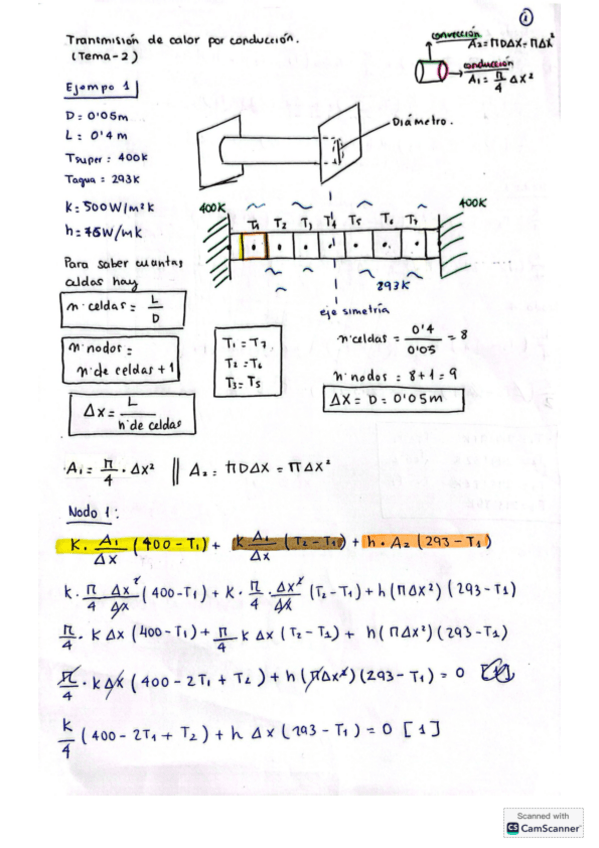 ①
Transmisión de calor por conducción.
(Tema-2)
convección
A₂=ΠDΔX=ΠΔX²
conducción
A₁= Π/4 ΔX²
Ejempo 1
D=0'05m
L= 0'4m
Tsuper: 400K
Tagua = 293K
K=500W/m²K
h=75W/mK
Diámetro.
400K
T₁ T₂ T₃ T₄ T₅ T₆ T₇
400K
293K
eje simetría
Para saber cuantas
celdas hay
n·celdas= L/D
n·nodos=
n·de celdas+1
ΔX= L/n·de celdas
T₁=T₇
T₂=T₆
T₃=T₅
n·celdas= 0'4/0'05 =8
n·nodos=8+1=9
ΔX=D=0'05m
A₁= Π/4 · ΔX² || A₂= ΠDΔX=ΠΔX²
Nodo 1:
K· A₁/ΔX (400-T₁)+ K·A₁/ΔX (T₂-T₁)+h·A₂(293-T₁)
K· Π/4 ΔX²/ΔX (400-T₁)+K· Π/4 · ΔX²/ΔX (T₂-T₁)+h(ΠΔX²)(293-T₁)
Π/4 · KΔX(400-T₁)+ Π/4 KΔX(T₂-T₁)+ h(ΠΔX²)(293-T₁)
Π/4 · KΔX(400-2T₁+T₂)+h(ΠΔX²)(293-T₁)=0
K/4 (400-2T₁+T₂)+hΔX(293-T₁)=0 [1]
Scanned with
CS CamScanner